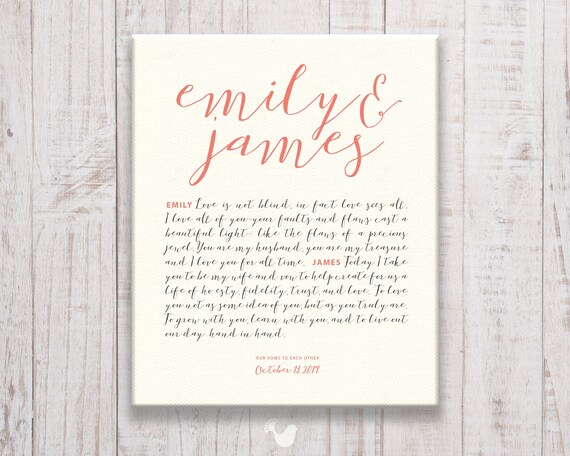 emily &
james
EMILY Love is not blind, in fact love sees all.
I love all of you-your faults and flaws cast a
beautiful light- like the flaws of a precious
jewel. You are my husband, you are my treasure
and I love you for all time. JAMES Today I take
you to be my wife and vow to help create for us a
life of ho esty, fidelity, trust, and love. To love
you not as some idea of you, but as you truly are.
To grow with you, learn with you, and to live out
our day hand in hand.
OUR VOWS TO EACH OTHER
October 13, 2019